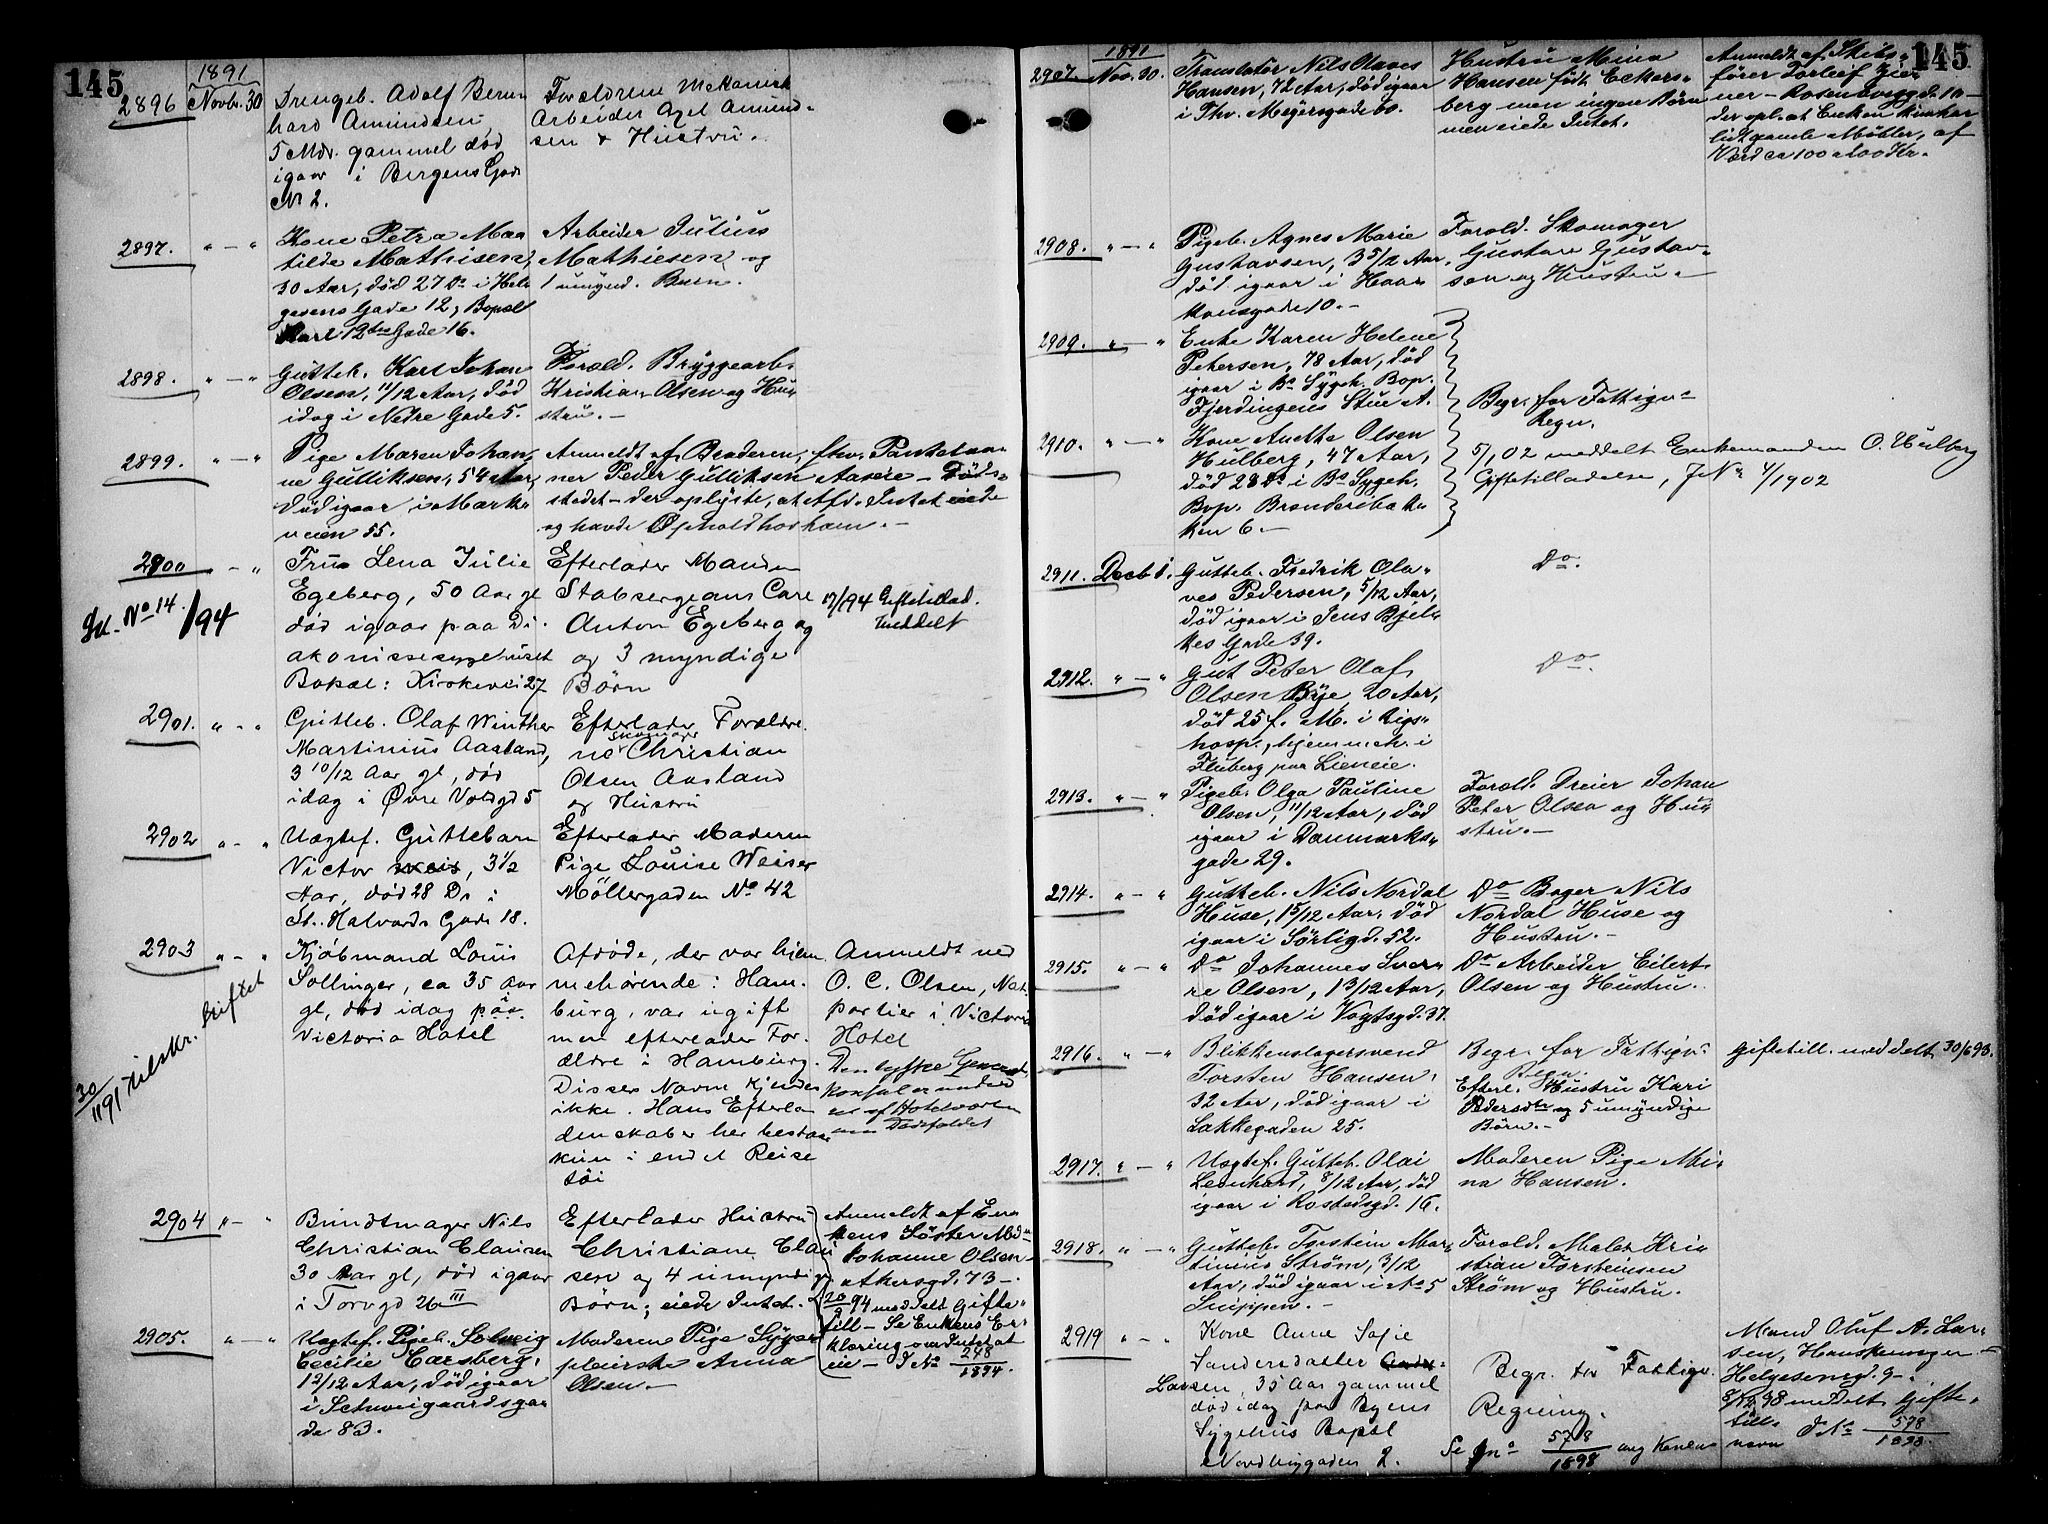 145
1891
2896 Novbr. 30 Drengeb. Adolf Bern
hard Amundsen
5 Mdr. gammel død
igaar i Bergens Gade
No 2.
Forældrene Mekanisk
Arbeider Axel Amund-
sen & Hustru.
2897. " — " Kone Petra Maa
tilde Mathisen,
30 Aar, død 27 Ds i Hel
gesens Gade 12, Bopæl
Karl 12tes Gade 16.
Arbeider Julius
Mathiesen og
1 umynd. Barn.
2898. " — " Gutteb. Karl Johan
Olsen, 11/12 Aar, død
idag i Nedre Gade 5.
Foræld. Bryggearb.
Kristian Olsen og Hu
stru. —
2899. " — " Pige Maren Johan
ne Gulliksen, 54 Aar,
død igaar i Marke
veien 55.
Anmeldt af Broderen, fhv. Pantelaa
ner Peder Gulliksen Aaseie — Døds-
stedet — der oplyste, at Afd. Intet eiede
og havde Ophold hos ham. —
2900 " — " Fru Lena Julie
Egeberg, 50 Aar gl
død igaar paa Di-
akonissesygehuset
Bopæl: Kirkevei 27
Efterlader Manden
Stabsergeant Carl
Anton Egeberg og
og 3 myndige
Børn
17/1 94 Giftetillad.
meddelt
Sk. No 14./94
2901. " — " Gutteb. Olaf Winther
Martinius Aasland,
3 10/12 Aar gl, død
idag i Øvre Voldgd 5
Efterlader Forældre
ne Skomager Christian
Olsen Aasland
og Hustru
2902 " — " Uægtef. Guttebarn
Victor Weis, 3 1/2
Aar, død 28 Ds i
St. Halvards Gade 18.
Efterlader Moderen
Pige Louise Weiser
Möllergaden No 42
2903 " — " Kjøbmand Louis
Sollinger, ca 35 Aar
gl, død idag på i
Victoria Hotel
Afdøde, der var hjem
mehørende i Ham-
burg, var ugift
men efterlader For-
ældre i Hamburg.
Disses Navn kjendes
ikke. Hans Efterla
denskaber her bestaar
kun i endel Reise
töi
Anmeldt ved
O. C. Olsen, Nat
portier i Victoria
Hotel
Den tyske General
konsul er underd
er af Hotelværten
om Dødsfaldet
30/11 91 tilskr. Skiftet
2904 " — " Bundtmager Nils
Christian Clausen
30 Aar gl, død igaar
i Torvgd 26 III
Efterlader Hustru
Christiane Clau
sen og 4 umyndige
Børn; eiede Intet.
Anmeldt af En
kens Söster Mdm
Johanne Olsen —
Akersgd. 73 —
20/9 94 meddelt Gifte-
till — Se Enkens Er-
klæring om Intet at
eie — J No 248/1894.
2905. " — " Uægtef. Pigeb. Solveig
Cecilie Carsberg,
1 2/12 Aar, död igaar
i Schweigaardsga
de 83.
Moderen Pige Syger
pleierske Anna
Olsen. —
145
1891
2907 Nov. 30. Translatør Nils Olaves
Hansen, 72 Aar, död igaar
i Thv. Meyersgade 60.
Hustru Mina
Hansen født Eckers-
berg men ingen Børn
men eiede Intet.
Anmeldt af Skibs-
fører Torleif Gjer
ner — Rosenborggd. 10 —
der opl. at Enken kun har
lidt gamle Møbler, af
Værd ca 100 a 200 Kr.
2908. " — " Pigeb. Agnes Marie
Gustavsen, 3 5/12 Aar,
død igaar i Haar
konsgade 10. —
Foræld. Skomager
Gustav Gustav-
sen og Hustru. —
2909. " — " Enke Karen Helene
Petersen, 78 Aar, død
igaar i Bs Sygeh. Bop.
Fjerdingens Stue A.
Begr. for Fattigv=
Regn.
2910. " — " Kone Anette Olsen
Hulberg, 47 Aar,
død 28 Ds i Bs Sygeh.
Bop. Brænderibak
ken 6. —
5/1 02 meddelt Enkemanden O. Hulberg
Giftetilladelse, J No 4/1902
2911. Decb 1. Gutteb. Fredrik Ola-
ves Pedersen, 5/12 Aar,
død igaar i Jens Bjel-
kes Gade 39.
Do.
2912. " — " Gut Peter Olaf
Olsen Bye, 20 Aar,
död 25 f. M. i Rigs-
hosp., hjemmeh. i
Fluberg paa Lieneie.
Do.
2913. " — " Pigeb. Olga Pauline
Olsen, 11/12 Aar, död
igaar i Danmarks-
gade 29.
Foræld. Dreier Johan
Peter Olsen og Hu
stru. —
2914. " — " Gutteb. Nils Nordal
Huse, 1 5/12 Aar, død
igaar i Sörligd. 52.
Do Bager Nils
Nordal Huse og
Hustru. —
2915. " — " Do Johannes Sver-
re Olsen, 1 3/12 Aar,
død igaar i Vogtsgd. 37.
Do Arbeider Eilert
Olsen og Hustru.
2916. " — " Blikkenslagersvend
Torsten Hansen,
32 Aar, död igaar i
Lakkegaden 25.
Begr. for Fattigv=
Regn.
Efterl. Hustru Kari
Pedersdtr og 5 umyndige
Børn. —
Giftetill. meddelt 30/6 93.
2917. " — " Uægtef. Gutteb. Olai
Leonhard, 8/12 Aar, død
igaar i Rostedsgd. 16.
Moderen Pige Mi-
na Hansen.
2918. " — " Gutteb. Torstein Mar-
tinius Strøm, 3/12
Aar, død igaar i No 5
Snippen. —
Foræld. Maler Kris
tian Torsteinsen
Strøm og Hustru.
2919 " — " Kone Anne Sofie
Sandersdatter
Larsen, 35 Aar gammel
död idag paa Byens
Sygehus Bopæl
Nordbygaden 2.
Begr. for Fattigv.
Regning.
Se Jno 578/1898 ang Konens navn
Mand Oluf A. Lar-
sen, Hanskemager —
Helgesensgd. 9 —
9/12 98 meddelt Gifte-
till. J No 578/1898.